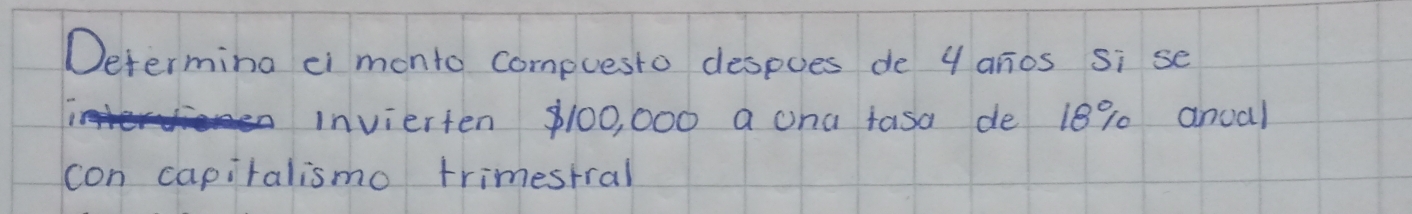 Determina el monto compuesto despues de 4 años si se
invierten $100,000 a una tasa de 18% anual
con capitalismo trimestral